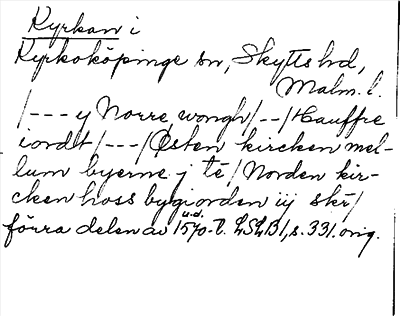 Kyrkan i
Kyrkoköpinge sn, Skytts hd,
Malm. l.
/--- y Norre wongh/--/Hauffre
iordt/---/Østen kircken mel-
lum byerne j te/Norden kir-
cken hoss bygiorden iij skr/
förra delen av 1570-t. LSLB1, s. 331. orig.
u.d.